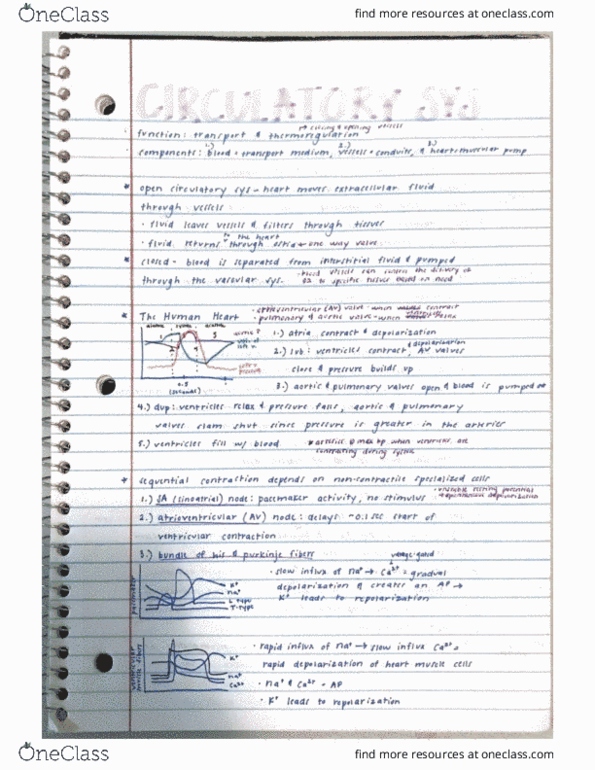 OneClass
find more resources at oneclass.com
CIRCULATORY SYS
closing & opening vessels
function: transport & thermoregulation
1.) 2.) 3.)
components: blood = transport medium, vessels = conduits, & heart = muscular pump
* open circulatory sys - heart moves extracellular fluid
through vessels
· fluid leaves vessels & filters through tissues
to the heart
· fluid returns through ostia + one way valve
* closed - blood is separated from interstitial fluid & pumped
through the vascular sys. - blood vessels can control the delivery of
O2 to specific tissues based on need
* The Human Heart - atrioventricular (AV) valve - when contract
- pulmonary & aortic valve - when relax
1.) atria contract & depolarization
& depolarization
2.) sub: ventricles contract, AV valves
close & pressure builds up
0.5
(seconds)
3.) aortic & pulmonary valves open & blood is pumped
4.) dup: ventricles relax & pressure falls, aortic & pulmonary
valves slam shut since pressure is greater in the arteries
5.) ventricles fill w/ blood * arteries max bp when ventricles are
contracting during systole
* sequential contraction depends on non-contractile specialized cells
1.) SA (sinoatrial) node: pacemaker activity, no stimulus - unstable resting potential
spontaneous depolarization
2.) atrioventricular (AV) node: delays ~0.1sec start of
ventricular contraction
3.) bundle of his & purkinje fibers
voltage-gated
· slow influx of Na⁺ → Ca²⁺ = gradual
depolarization & creates an AP →
K⁺ leads to repolarization
pacemaker
K⁺
Na⁺
L-type
T-type
· rapid influx of Na⁺ → slow influx Ca²⁺ =
rapid depolarization of heart muscle cells
· Na⁺ & Ca²⁺ = AP
· K⁺ leads to repolarization
ventricular
muscle fibers
K⁺
Na⁺
Ca²⁺
OneClass
find more resources at oneclass.com